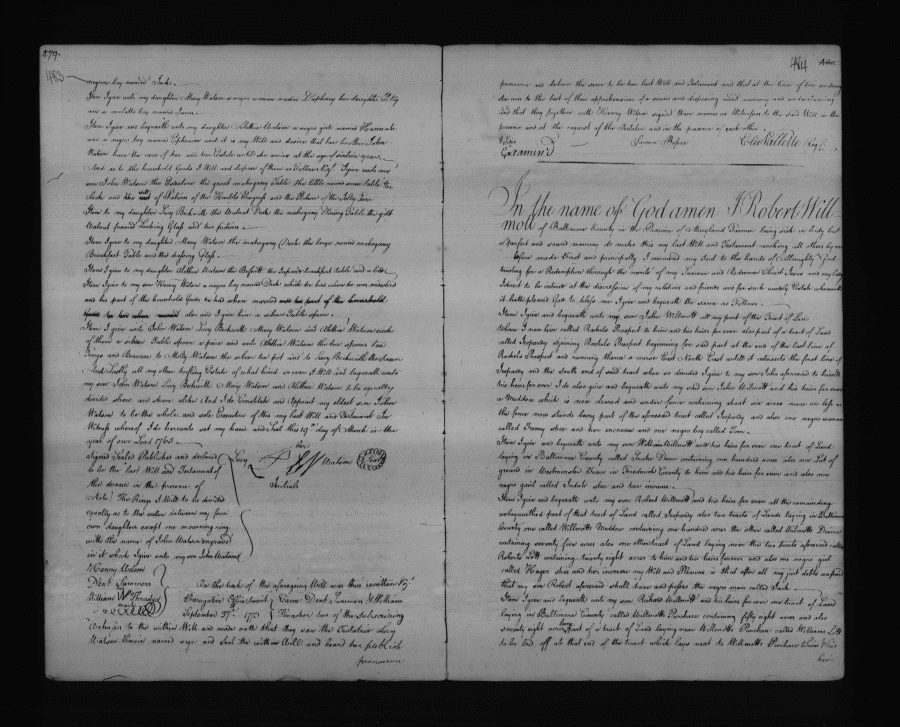 879
483
negroe boy named Jack.
Item I give unto my daughter Mary Watson a negroe woman named Daphney her daughter
and a molatto boy named
Item I give and bequeath unto my daughter Watson a negroe girl named Hannah
and a negroe boy named Ephraim and it is my Will and desire that her brother John
Watson have the care of her and her Estate until she arrive at the age of sixteen years.
And as to the household Goods I Will and dispose of them as follows Viz.t I give unto my
son John Watson the great mahogany Table the little
and the of Pictures of the and the Picture of the
Item to my daughter Lucy Beckwith the Walnut Desk the mahogany Dining Table the gilt
Walnut framed Looking Glass and two pictures
Item I give to my daughter Mary Watson the mahogany Desk the large round mahogany
Breakfast Table and the dressing Glass.
Item I give to my daughter Watson the Beaufitt the Japan'd breakfast table and a bed
Item I give to my son Henry Watson a negroe boy named Dick which he has when he was married
and his part of the household Goods he had when married
also and I give him a silver Table spoon
Item I give unto John Watson Lucy Beckwith Mary Watson and Watson each
of them a silver Table spoon a piece and unto Watson the tea spoons tea
Tongs and to Molly Watson the silver tea pot and to Lucy Beckwith the
And Lastly all my other trifling Estate of what kind so ever I Will and bequeath unto
my son John Watson Lucy Beckwith Mary Watson and Watson to be equally
divided share and share alike And I do Constitute and Appoint my eldest son John
Watson to be the whole and sole Executor of this my last Will and Testament In
Witness whereof I do hereunto set my hand and Seal this 19th day of March in the
year of our Lord 1765.
Signed Sealed Published and declared
to be the last Will and Testament of
the in the presence of
Note! The Rings I Will to be divided
equally as to the value between my four
own daughters except one mourning ring
with the name of John Watson engraved
in it which I give unto my son John Watson
Lucy her Watson Seal
Initials
Henry Watson
Dent Summers
William Thrasher
On the back of the aforegoing Will was thus written Viz.t
Prerogative Office
September 29th 1773
Came Dent Summers & William
Thrasher two of the Subscribing
Witnesses to the within Will and made oath that they saw the Testatrix Lucy
Watson therein named sign and Seal the within Will and heard her publish
pronounce
484
pronounce and declare the same to be her last Will and Testament and that at the time of her so doing
she was to the best of their apprehensions of a sound and disposing mind memory and understanding
and that they together with Henry Watson signed their names as Witnesses to the said Will in the
presence and at the request of the Testatrix and in the presence of each other.
Examin'd
Elie Vallette Reg.r
In the name of God amen I Robert Will
mott of Baltimore County in the Province of Maryland Farmer being sick in body but
of perfect and sound memory do make this my last Will and Testament revoking all others by me
before made First and principally I commend my Soul to the hands of Allmighty God
trusting for a Redemption through the merits of my Saviour and Redeemer Christ Jesus and my body
I desire to be interr'd at the discretion of my relations and friends and for such worldly Estate wherewith
it hath pleased God to bless me I give and bequeath the same as follows
Item I give and bequeath unto my son John Willmott all my part of the Tract of Land
where I now live called Rachels Prospect to him and his heirs for ever also part of a tract of Land
called Jeopardy adjoining Rachels Prospect beginning for said part at the end of the last line of
Rachels Prospect and running thence a course East North East untill it intersects the first line of
Jeopardy and the South end of said tract when so divided I give to my son John aforesaid to him and
his heirs for ever I do also give and bequeath unto my said son John Willmott and his heirs for ever
a Meadow which is now cleared and under fence containing about six acres more or less as
the fence now stands being part of the aforesaid tract called Jeopardy and also one negroe woman
called Fanny she and her increase and one negroe boy called Tom.
Item I give and bequeath unto my son William Willmott and his heirs for ever one tract of Land
laying in Baltimore County called containing one hundred acres also one Lot of
ground in Westminster Town in Frederick County to him and his heirs for ever and also one
negroe girl called she and her increase.
Item I give and bequeath unto my son Robert Willmott and his heirs for ever all the remaining
unbequeathed part of that tract of Land called Jeopardy also two tracts of Lands laying in Baltimore
County one called Willmotts Meadow containing one hundred acres the other called Willmotts
containing seventy five acres also one other tract of Land laying near the two tracts aforesaid called
Roberts Lott containing twenty eight acres to him and his heirs forever and also one negroe girl
called Hager she and her increase my Will and Pleasure is that after all my just debts are paid
that my son Robert aforesaid shall have and possess the negroe man called Jack.
Item I give and bequeath unto my son Richard Willmott and his heirs for ever one tract of Land
laying in Baltimore County called Willmotts Purchase containing fifty eight acres and also
seventy eight acres part of a tract of Land laying near Willmotts Purchase called Williams Lott
to be laid off at that end of the tract which lays next to Willmotts Purchase
heirs